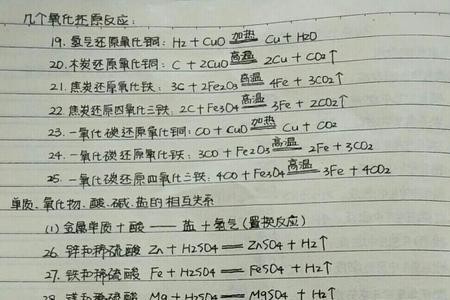 几个氧化还原反应:
19.氢气还原氧化铜: H2 + CuO 加热 Cu + H2O
20.木炭还原氧化铜: C + 2CuO 高温 2Cu + CO2↑
21.焦炭还原氧化铁: 3C + 2Fe2O3 高温 4Fe + 3CO2↑
22.焦炭还原四氧化三铁: 2C + Fe3O4 高温 3Fe + 2CO2↑
23.一氧化碳还原氧化铜: CO + CuO 加热 Cu + CO2
24.一氧化碳还原氧化铁: 3CO + Fe2O3 高温 2Fe + 3CO2
25.一氧化碳还原四氧化三铁: 4CO + Fe3O4 高温 3Fe + 4CO2
单质、氧化物、酸、碱、盐的相互关系
(1)金属单质+酸——盐+氢气(置换反应)
26.锌和稀硫酸 Zn + H2SO4 == ZnSO4 + H2↑
27.铁和稀硫酸 Fe + H2SO4 == FeSO4 + H2↑
28.镁和稀硫酸 Mg + H2SO4 == MgSO4 + H2↑